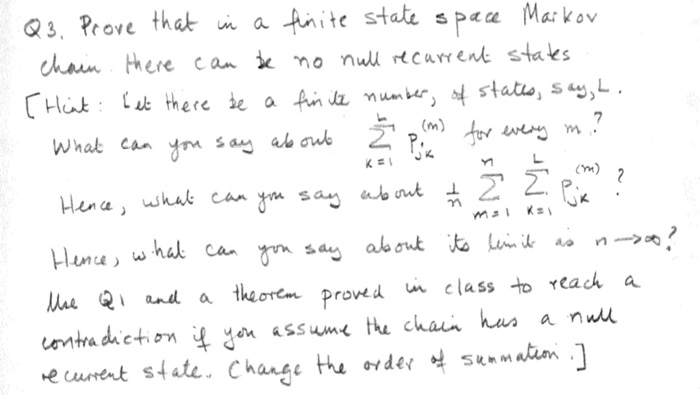 Q3. Prove that in a finite state space Markov
chain there can be no null recurrent states
[Hint: Let there be a finite number, of states, say, L.
What can you say about \sum_{k=1}^{L} P_{jk}^{(m)} for every m?
Hence, what can you say about \frac{1}{n} \sum_{m=1}^{n} \sum_{k=1}^{L} P_{jk}^{(m)} ?
Hence, what can you say about its limit as n→∞?
Use Q1 and a theorem proved in class to reach a
contradiction if you assume the chain has a null
recurrent state. Change the order of summation.]